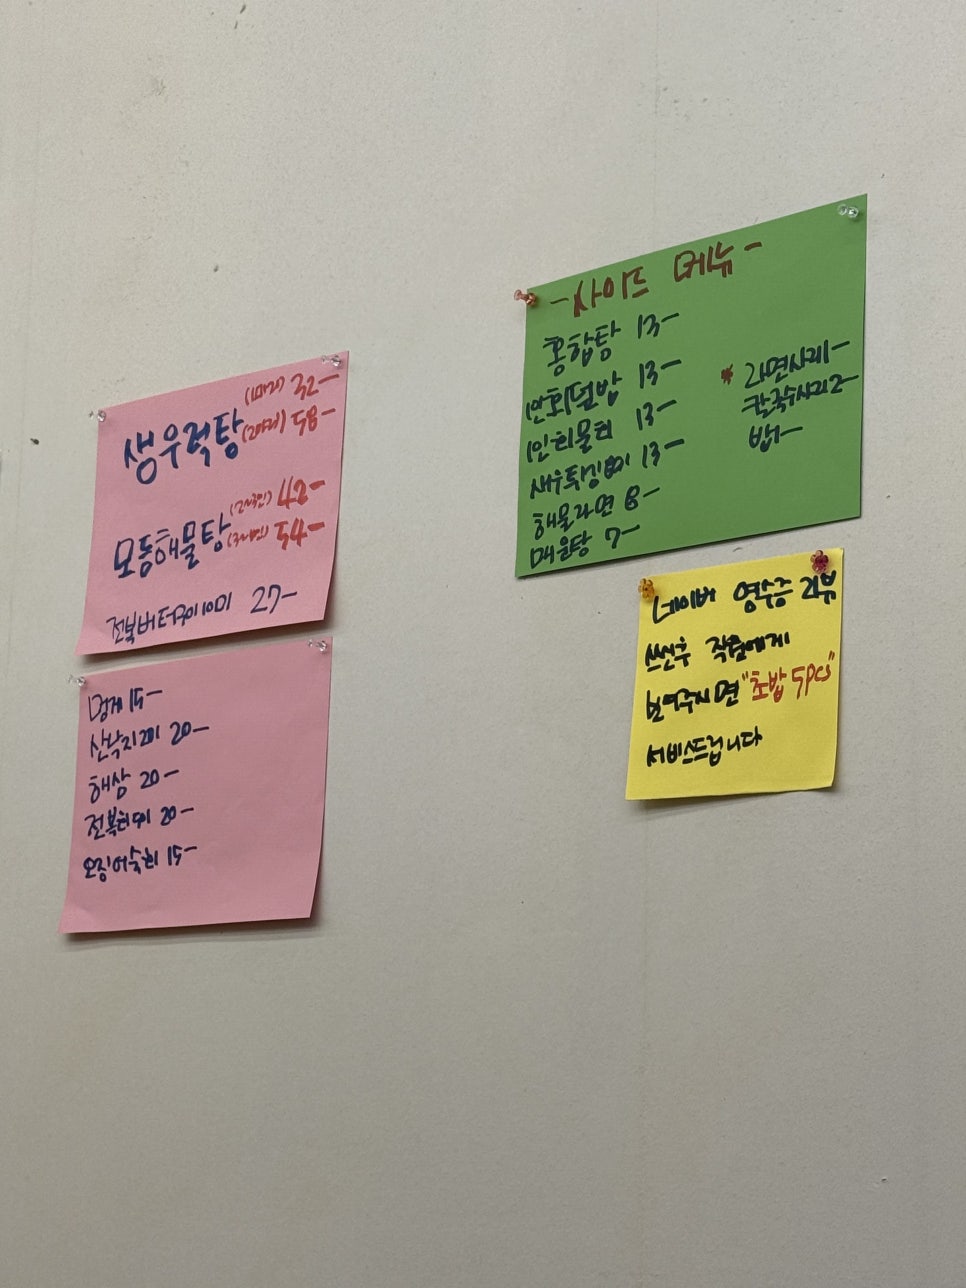 생우럭탕 (1마리) 32-
(2마리) 58-
모듬해물탕 (2~3인) 42-
(3~4인) 54-
전복버터구이 10미 27-
멍게 15-
산낙지 20-
해삼 20-
전복 20-
오징어숙회 15-
-사이드 메뉴-
홍합탕 13-
1인회덮밥 13-
1인회물회 13-
새우튀김 13-
해물라면 8-
매운탕 7-
* 라면사리 1-
칼국수사리 2-
밥 1-
네이버 영수증 리뷰
쓰신후 직원에게
보여주시면 "초밥 5pcs"
서비스드립니다